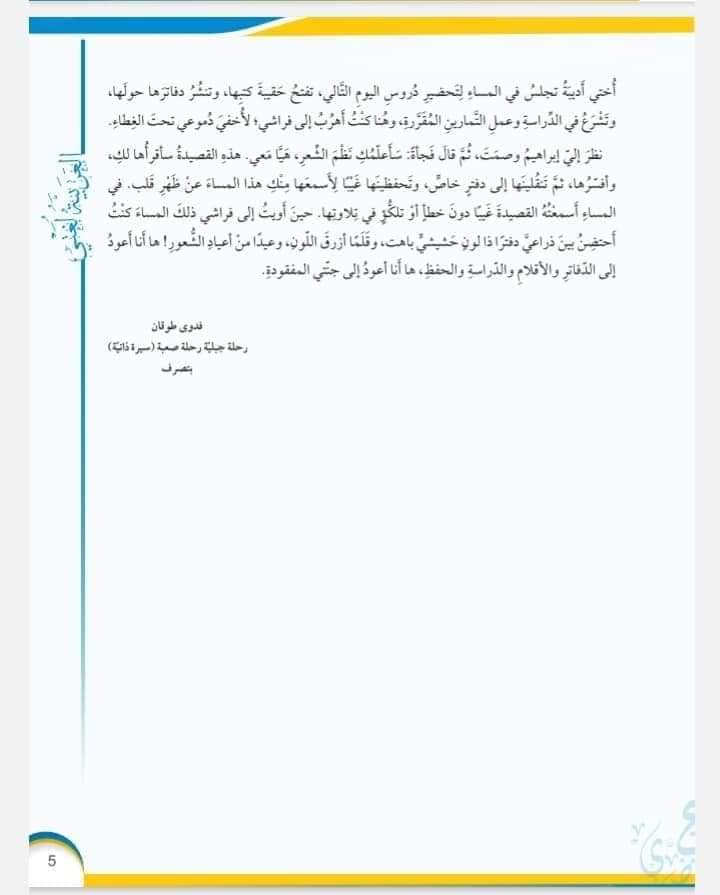 أُختي أديبَةُ تجلسُ في المساءِ لِتَحضيرِ دُروسِ اليومِ التَّالي، تفتحُ حَقيبةَ كتبِها، وتنثُرُ دفاترَها حولَها،
وتَشْرَعُ في الدِّراسةِ وعملِ التَّمارينِ المُقَرَّرةِ، وهُنا كنْتُ أَهرُبُ إلى فراشي؛ لأُخفيَ دُموعي تحتَ الغِطاءِ.
نظرَ إليّ إبراهيمُ وصمَتَ، ثُمَّ قالَ فَجأةً: سَأعلّمُكِ نَظْمَ الشِّعرِ، هَيّا مَعي. هذهِ القصيدةُ سأقرأُها لكِ،
وأفسّرُها، ثمَّ تَنقُلينَها إلى دفترٍ خاصٍّ، وتَحفظينَها غَيْبًا لِأَسمعَها مِنْكِ هذا المساءَ عنْ ظَهْرِ قَلب. في
المساءِ أَسمعْتُهُ القصيدةَ غَيبًا دونَ خطأٍ أوْ تلكُّؤٍ في تِلاوتِها. حينَ أَويتُ إلى فراشي ذلكَ المساءَ كنْتُ
أَحتضِنُ بينَ ذراعيَّ دفترًا ذا لونٍ حَشيشيٍّ باهت، وقَلَمًا أزرقَ اللّونِ، وعيدًا منْ أعيادِ الشُّعورِ! ها أنا أَعودُ
إلى الدّفاترِ والأقلامِ والدّراسةِ والحفظِ، ها أنا أعودُ إلى جنّتي المفقودةِ.
فدوى طوقان
رحلة جبليّة رحلة صعبة (سيرة ذاتيّة)
بتصرف
العَرَبِيَّةُ لُغَتي
5